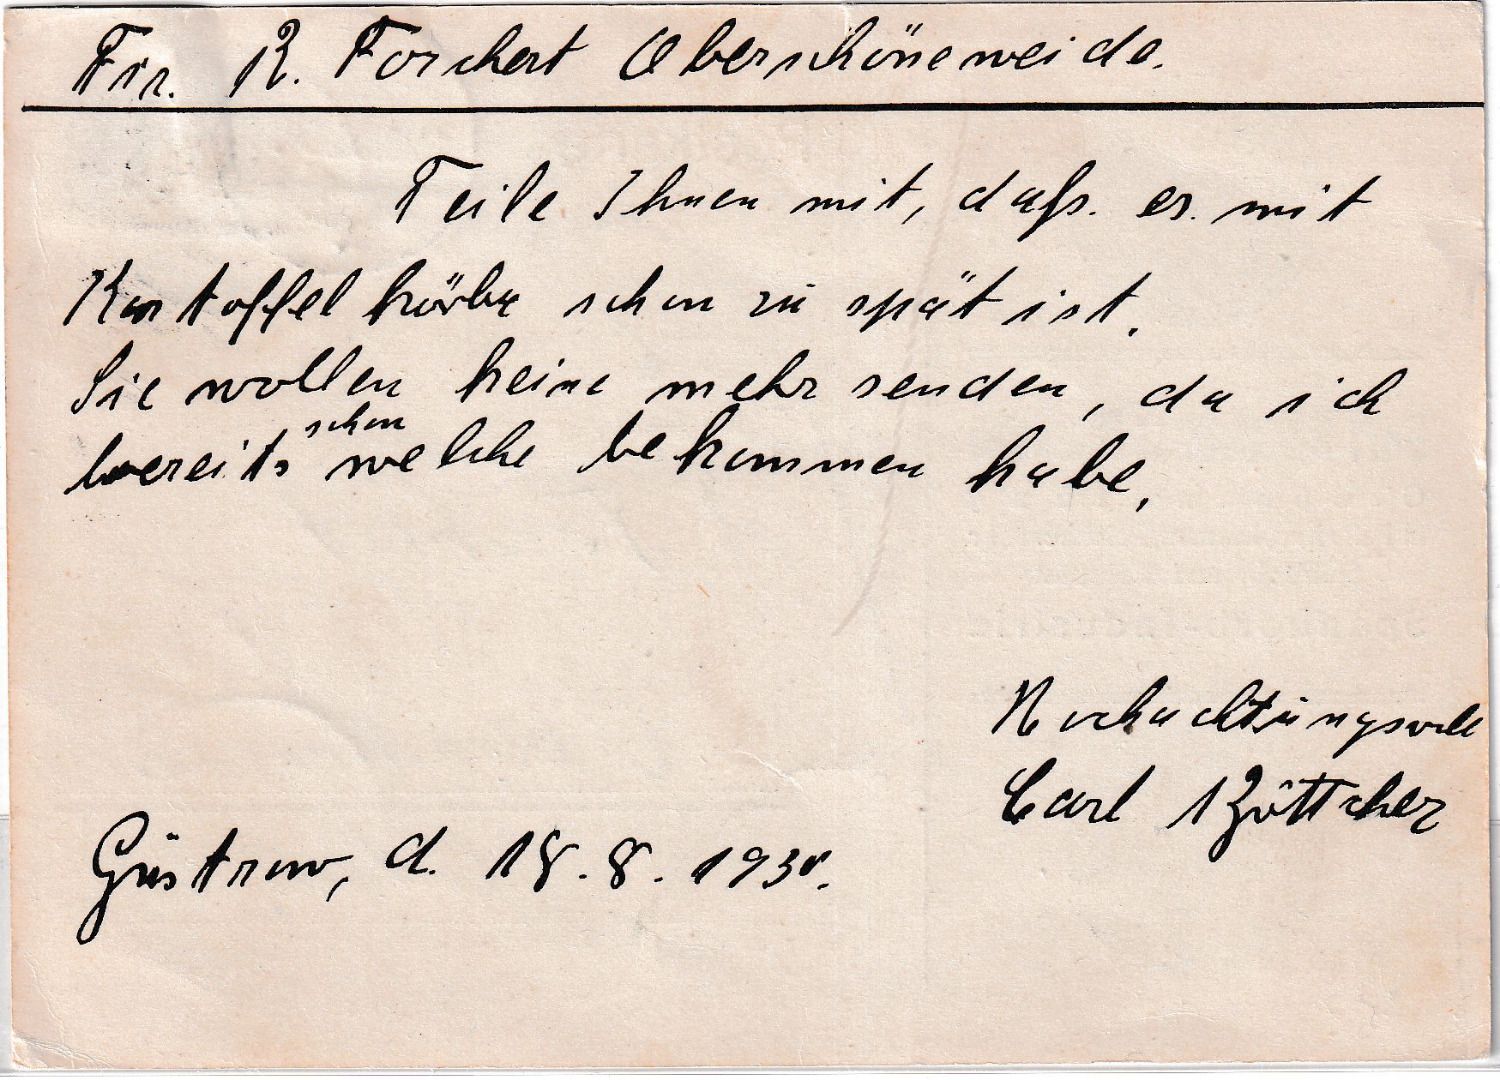 Fir. R. Forchert Oberschöneweide.
Teile Ihnen mit, daß. es. mit
Kartoffelkörbe schon zu spät ist.
Sie wollen keine mehr senden, da ich
schon
bereits welche bekommen habe.
Hochachtungsvoll
Carl Böttcher
Güstrow, d. 18. 8. 1938.